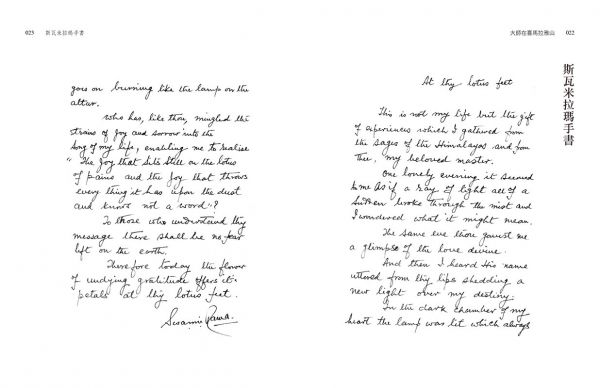 大師在喜馬拉雅山 022
斯瓦米拉瑪手書
At thy lotus feet
This is not my life but the gift
of experiences which I gathered from
the sages of the Himalayas and from
thee, my beloved master.
One lovely evening it seemed
to me as if a ray of light all of a
sudden broke through the mist and
I wondered what it might mean.
The same eve thou gavest me
a glimpse of the love divine.
And then I heard His name
uttered from thy lips shedding a
new light over my destiny.
In the dark chamber of my
heart the lamp was lit which always
023 斯瓦米拉瑪手書
goes on burning like the lamp on the
altar.
Who has, like thou, mingled the
strains of joy and sorrow into the
song of my life, enabling me to realise
"The joy that sits still on the lotus
of pains and the joy that throws
everything it has upon the dust
and knows not a word"?
To those who understand thy
message there shall be no fear
left on the earth.
Therefore today the flower
of undying gratitude offers its
petals at thy lotus feet.
Swami Rama